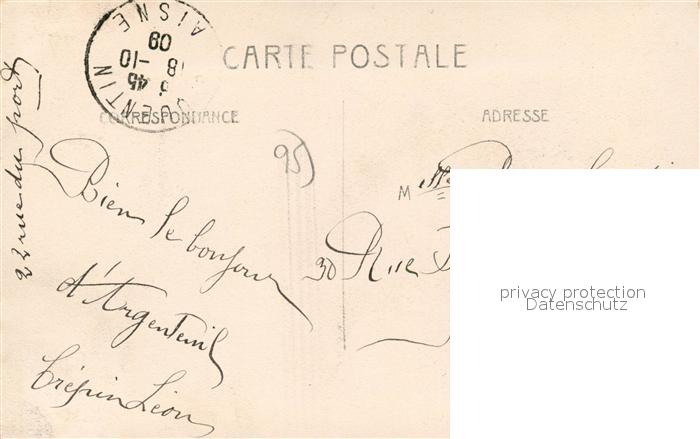 CARTE POSTALE
CORRESPONDANCE
ADRESSE
QUENTIN
AISNE
45
18 -10
09
95
22 rue du port
Bien le bonjour
d'Argenteuil
Crépin Léon
M
30 Rue
privacy protection
Datenschutz